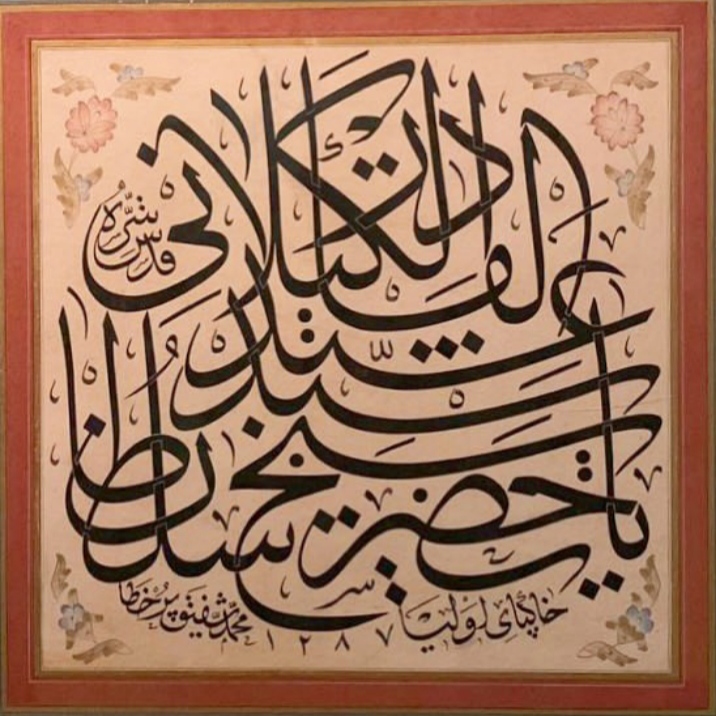 يا حضرت سلطان
شيخ سيد عبد القادر الكيلاني
قدس سره
خاكپاى اوليا محمد شفيق پر خطا
١٢٨٧